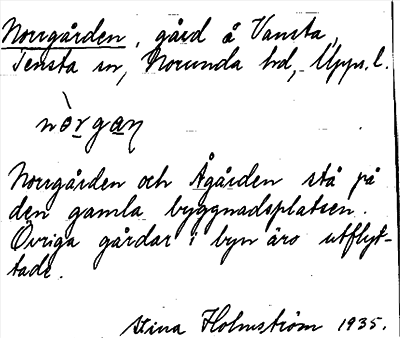 Norrgården, gård å Vansta,
Tensta sn, Norunda hd, Upps. l.
nòrgaɳ
Norrgården och Ågården stå på
den gamla byggnadsplatsen.
Övriga gårdar i byn äro utflyt-
tade.
Stina Holmström 1935.